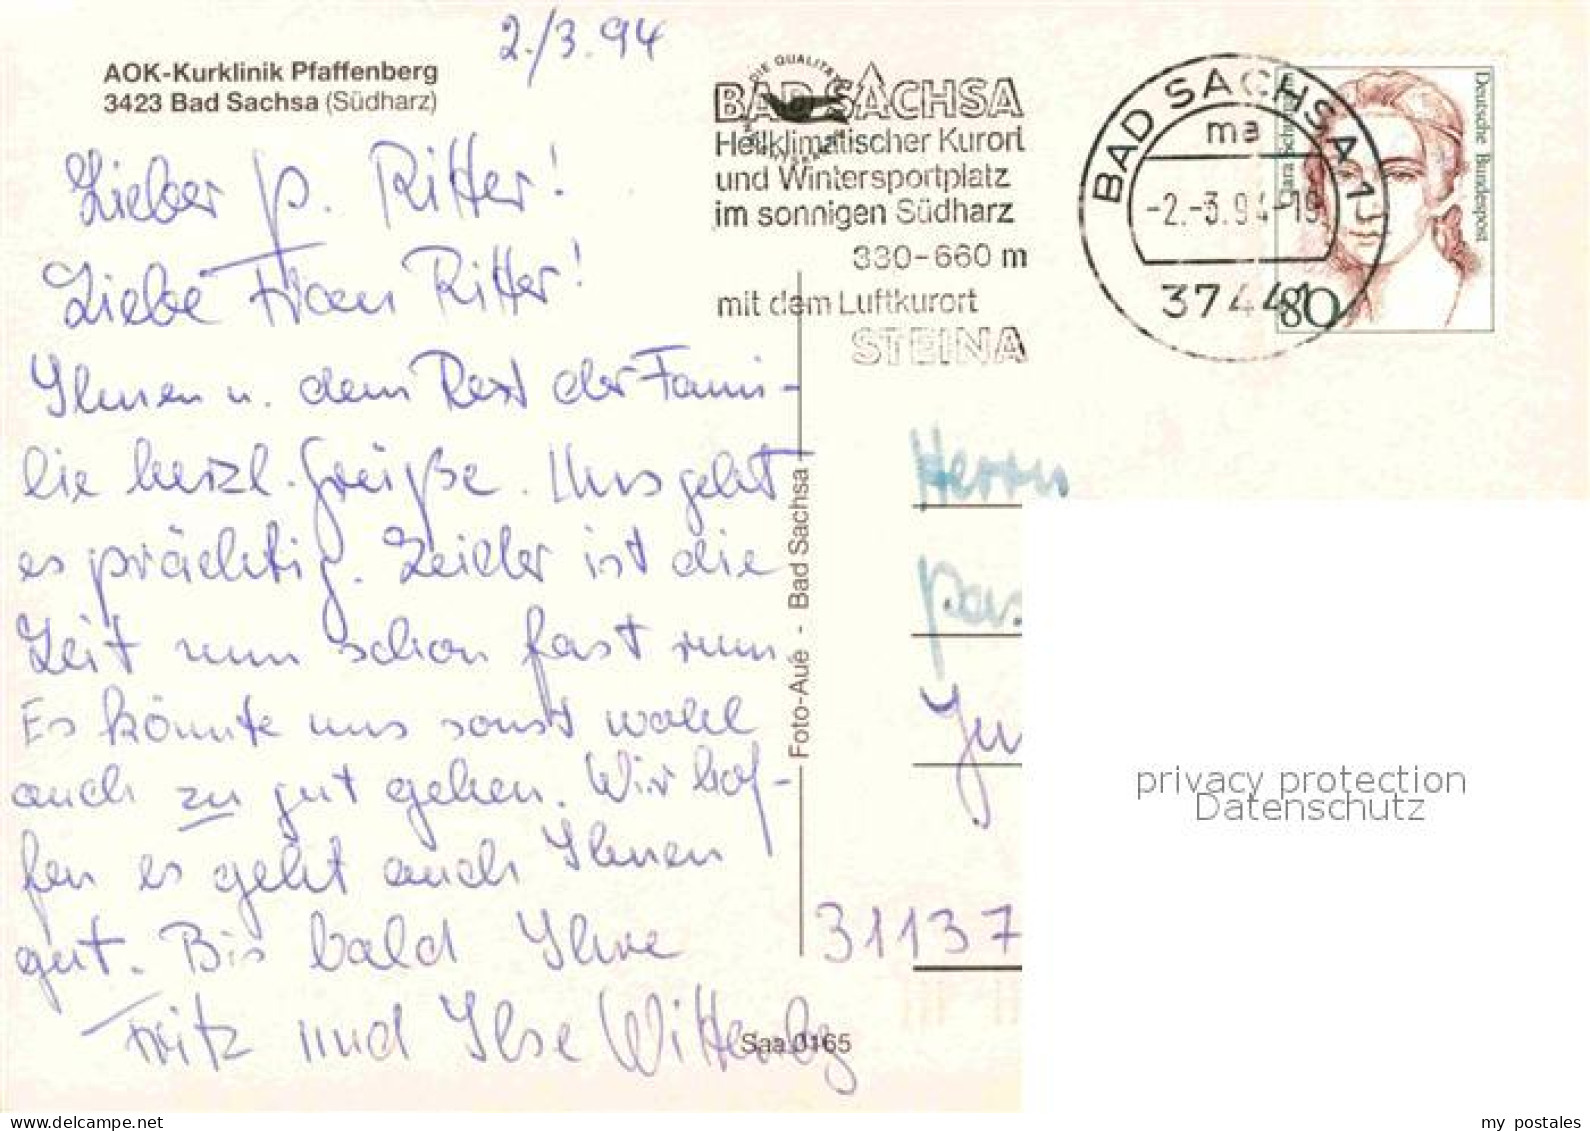 2./3.94
AOK-Kurklinik Pfaffenberg
3423 Bad Sachsa (Südharz)
Lieber P. Ritter!
Liebe Frau Ritter!
Ihnen u. dem Rest der Fami-
lie herzl. Grüße. Uns geht
es prächtig. Leider ist die
Zeit nun schon fast rum
Es könnte uns sonst wohl
auch zu gut gehen. Wir hof-
fen es geht auch Ihnen
gut. Bis bald Ihre
Fritz und Ilse Wittenberg
BAD SACHSA
Heilklimatischer Kurort
und Wintersportplatz
im sonnigen Südharz
330-660 m
mit dem Luftkurort
STEINA
BAD SACHSA 1
ma
-2.-3.94-19
37441
Deutsche Bundespost
80
Foto-Aue - Bad Sachsa
Herrn
Pas
31137
Saa 0165
privacy protection
Datenschutz
my postales